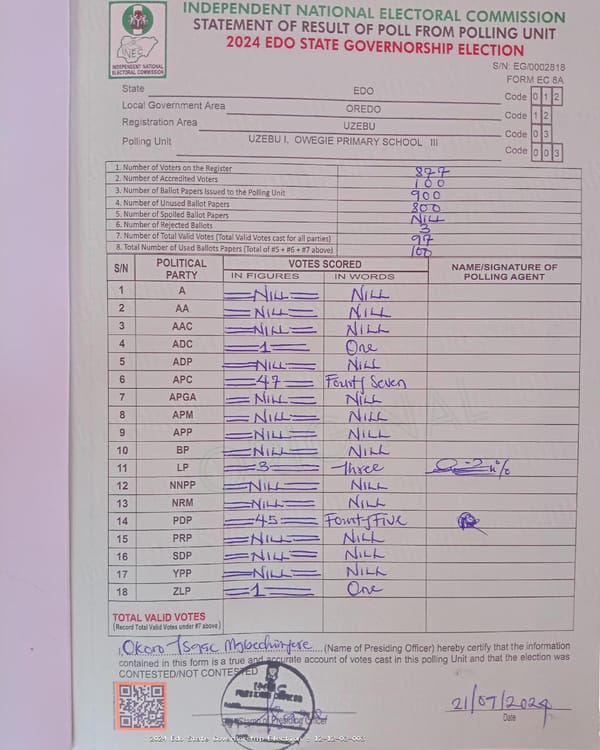 INDEPENDENT NATIONAL ELECTORAL COMMISSION
STATEMENT OF RESULT OF POLL FROM POLLING UNIT
2024 EDO STATE GOVERNORSHIP ELECTION
INEC
INDEPENDENT NATIONAL
ELECTORAL COMMISSION
S/N: EG/0002818
FORM EC 8A
State EDO Code 0 1 2
Local Government Area OREDO Code 1 2
Registration Area UZEBU Code 0 3
Polling Unit UZEBU I, OWEGIE PRIMARY SCHOOL III Code 0 0 3
1. Number of Voters on the Register 877
2. Number of Accredited Voters 100
3. Number of Ballot Papers Issued to the Polling Unit 900
4. Number of Unused Ballot Papers 800
5. Number of Spoiled Ballot Papers NILL
6. Number of Rejected Ballots 3
7. Number of Total Valid Votes (Total Valid Votes cast for all parties) 97
8. Total Number of Used Ballots Papers (Total of #5 + #6 + #7 above) 100
S/N POLITICAL PARTY VOTES SCORED NAME/SIGNATURE OF POLLING AGENT
IN FIGURES IN WORDS
1 A NILL NILL
2 AA NILL NILL
3 AAC NILL NILL
4 ADC 1 One
5 ADP NILL NILL
6 APC 47 Fourty Seven
7 APGA NILL NILL
8 APM NILL NILL
9 APP NILL NILL
10 BP NILL NILL
11 LP 3 three
12 NNPP NILL NILL
13 NRM NILL NILL
14 PDP 45 Fourty Five
15 PRP NILL NILL
16 SDP NILL NILL
17 YPP NILL NILL
18 ZLP 1 One
TOTAL VALID VOTES
(Record Total Valid Votes under #7 above)
I, Okoro Isaac (Name of Presiding Officer) hereby certify that the information
contained in this form is a true and accurate account of votes cast in this polling Unit and that the election was
CONTESTED/NOT CONTESTED
INEC
PRESIDING OFFICER
Presiding Officer
21/09/2024
Date
2024 Edo State Governorship Election - 12-12-03-003